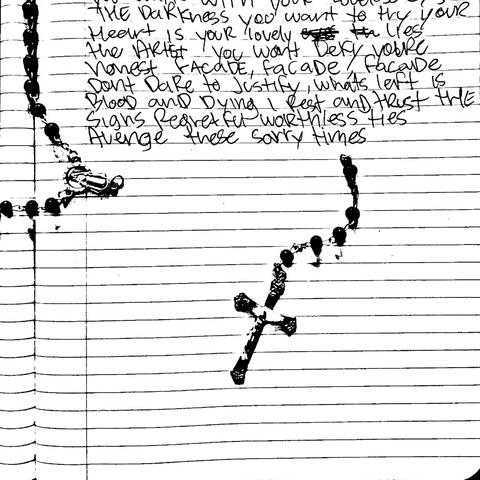 WITH YOUR
THE DARKNESS you want to try YOUR
Heart IS YOUR lovely lies
the Artist you won't Deny you're
honest FACADE, FACADE, FACADE
Dont DARE to Justify, whats left is
Blood and Dying I Rest and trust THE
Signs Regretful worthless ties
Avenge these sorry times